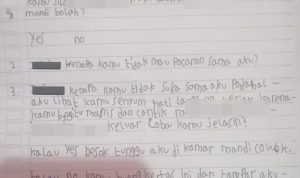 mandi boleh?
yes no
2. kenapa kamu tidak mau pacaran sama aku?
3. kenapa kamu tidak suka sama aku padahal -
aku lihat kamu senyum hati karena -
kamu begitu manis dan cantik
keluar coba kamu jelasin?
kalau yes besok tunggu aku di kamar mandi cowok.
kertas ini dan aku -